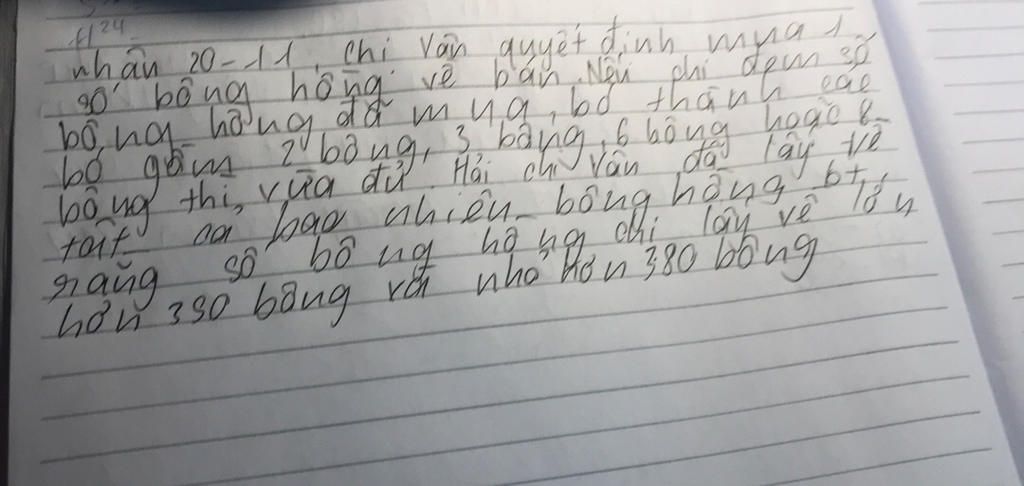 nhân 20-11, chị Vân quyết định mua 1
số bông hồng về bán. Nếu chị đem số
bông hồng đã mua, bó thành các
bó gồm 2 bông, 3 bông, 6 bông hoặc 8
bông thì vừa đủ. Hỏi chị Vân đã lấy về
tất cả bao nhiêu bông hồng bt,
rằng số bông hồng chị lấy về lớn
hơn 350 bông và nhỏ hơn 380 bông